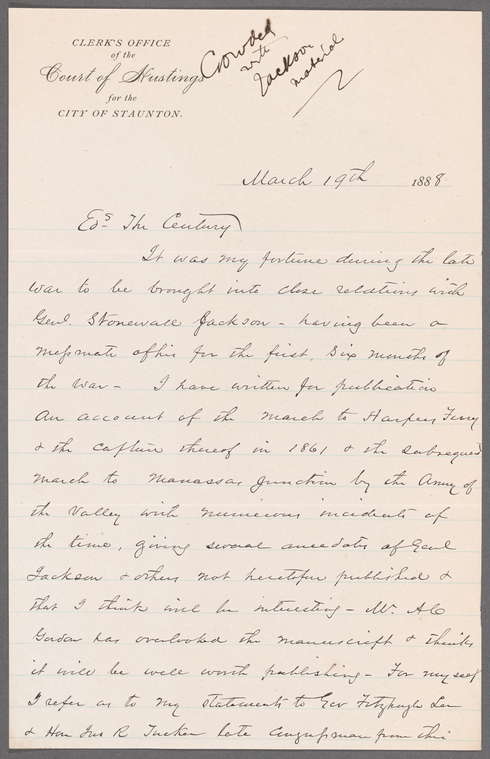 CLERK'S OFFICE
of the
Court of Hustings
for the
CITY OF STAUNTON.
Crowded
with
Jackson
material
March 19th 1888
Eds. The Century
It was my fortune during the late
war to be brought into close relations with
Genl. Stonewall Jackson - having been a
messmate of his for the first six months of
the war - I have written for publication
an account of the march to Harpers Ferry
& the capture thereof in 1861 & the subsequent
march to Manassas Junction by the Army of
the Valley with numerous incidents of
the time, giving several anecdotes of Genl
Jackson & others not heretofore published &
that I think will be interesting - Mr. A C
Gordon has overlooked the manuscript & thinks
it will be well worth publishing - For myself
I refer as to my statements to Gov Fitzhugh Lee
& Hon Jno R Tucker late Congressman from this